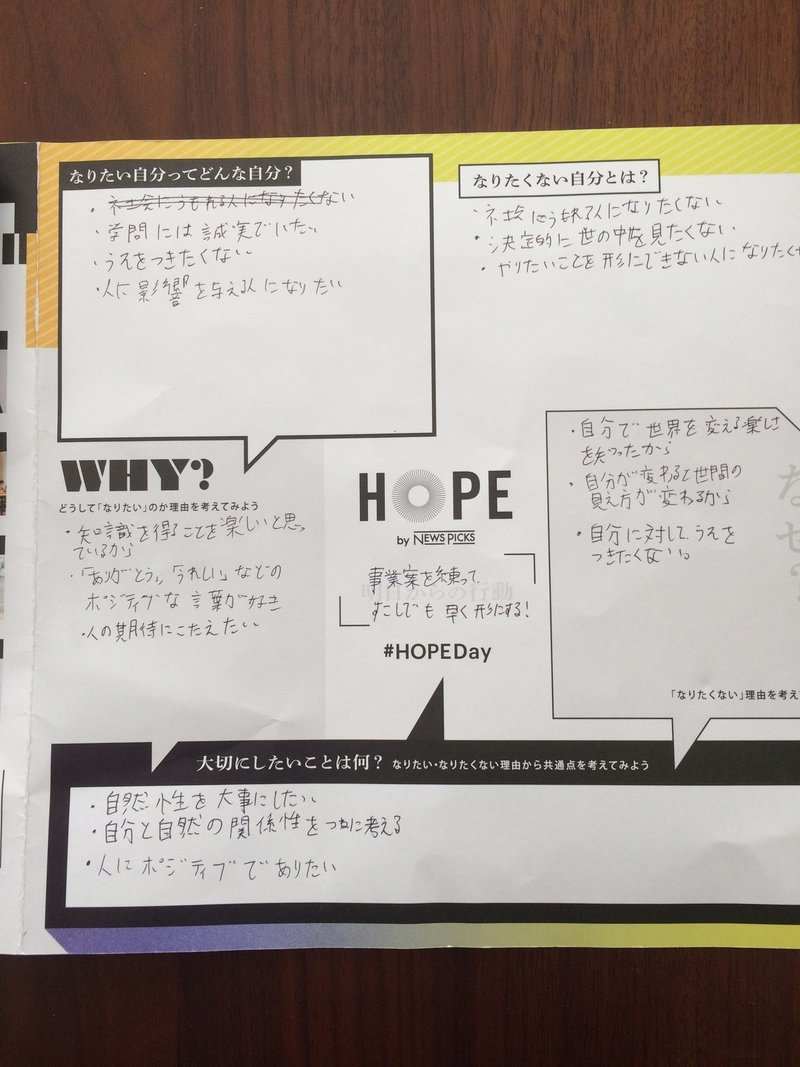 なりたい自分ってどんな自分？
・社会にうもれる人になりたくない
・学問には誠実でいたい
・うそをつきたくない
・人に影響を与える人になりたい
なりたくない自分とは？
・社会にうもれる人になりたくない
・決定的に世の中を見たくない
・やりたいことを形にできない人になりたくな
WHY?
どうして「なりたい」のか理由を考えてみよう
・知識を得ることを楽しいと思っ
ているから
・「ありがとう」,「うれしい」などの
ポジティブな言葉が好き
・人の期待にこたえたい
HOPE
by NEWSPICKS
明日からの行動
事業案を練って
すこしでも早く形にする!
#HOPEDay
・自分で世界を変える楽しさ
を知ったから
・自分が変わると世間の
見え方が変わるから
・自分に対して、うそを
つきたくない。
なぜ?
「なりたくない」理由を考えて
大切にしたいことは何？ なりたい・なりたくない理由から共通点を考えてみよう
・自然性を大事にしたい
・自分と自然の関係性をつねに考える
・人にポジティブでありたい